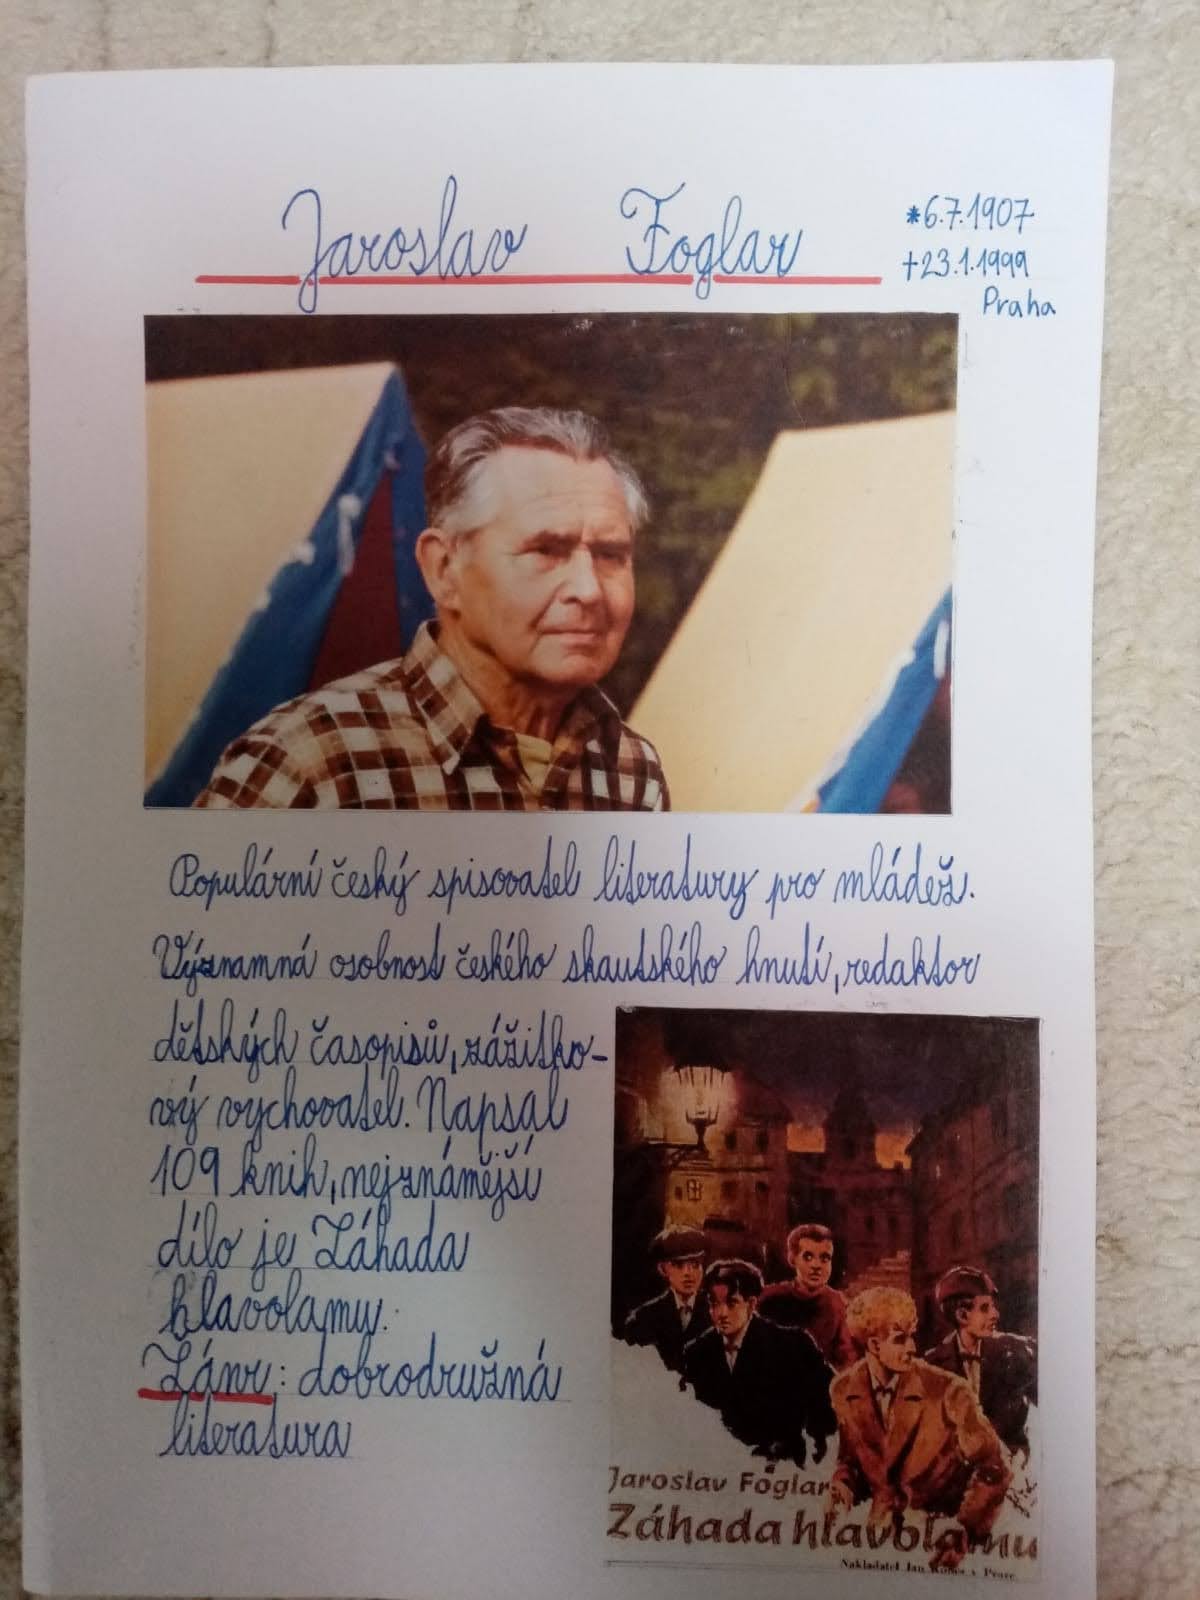 Jaroslav Foglar
*6.7.1907
†23.1.1999
Praha
Populární český spisovatel literatury pro mládež.
Významná osobnost českého skautského hnutí, redaktor
dětských časopisů, zážitko-
vý vychovatel. Napsal
109 knih, nejznámější
dílo je Záhada
hlavolamu.
Žánr: dobrodružná
literatura
Jaroslav Foglar
Záhada hlavolamu
Nakladatel Jan Kobes v Praze